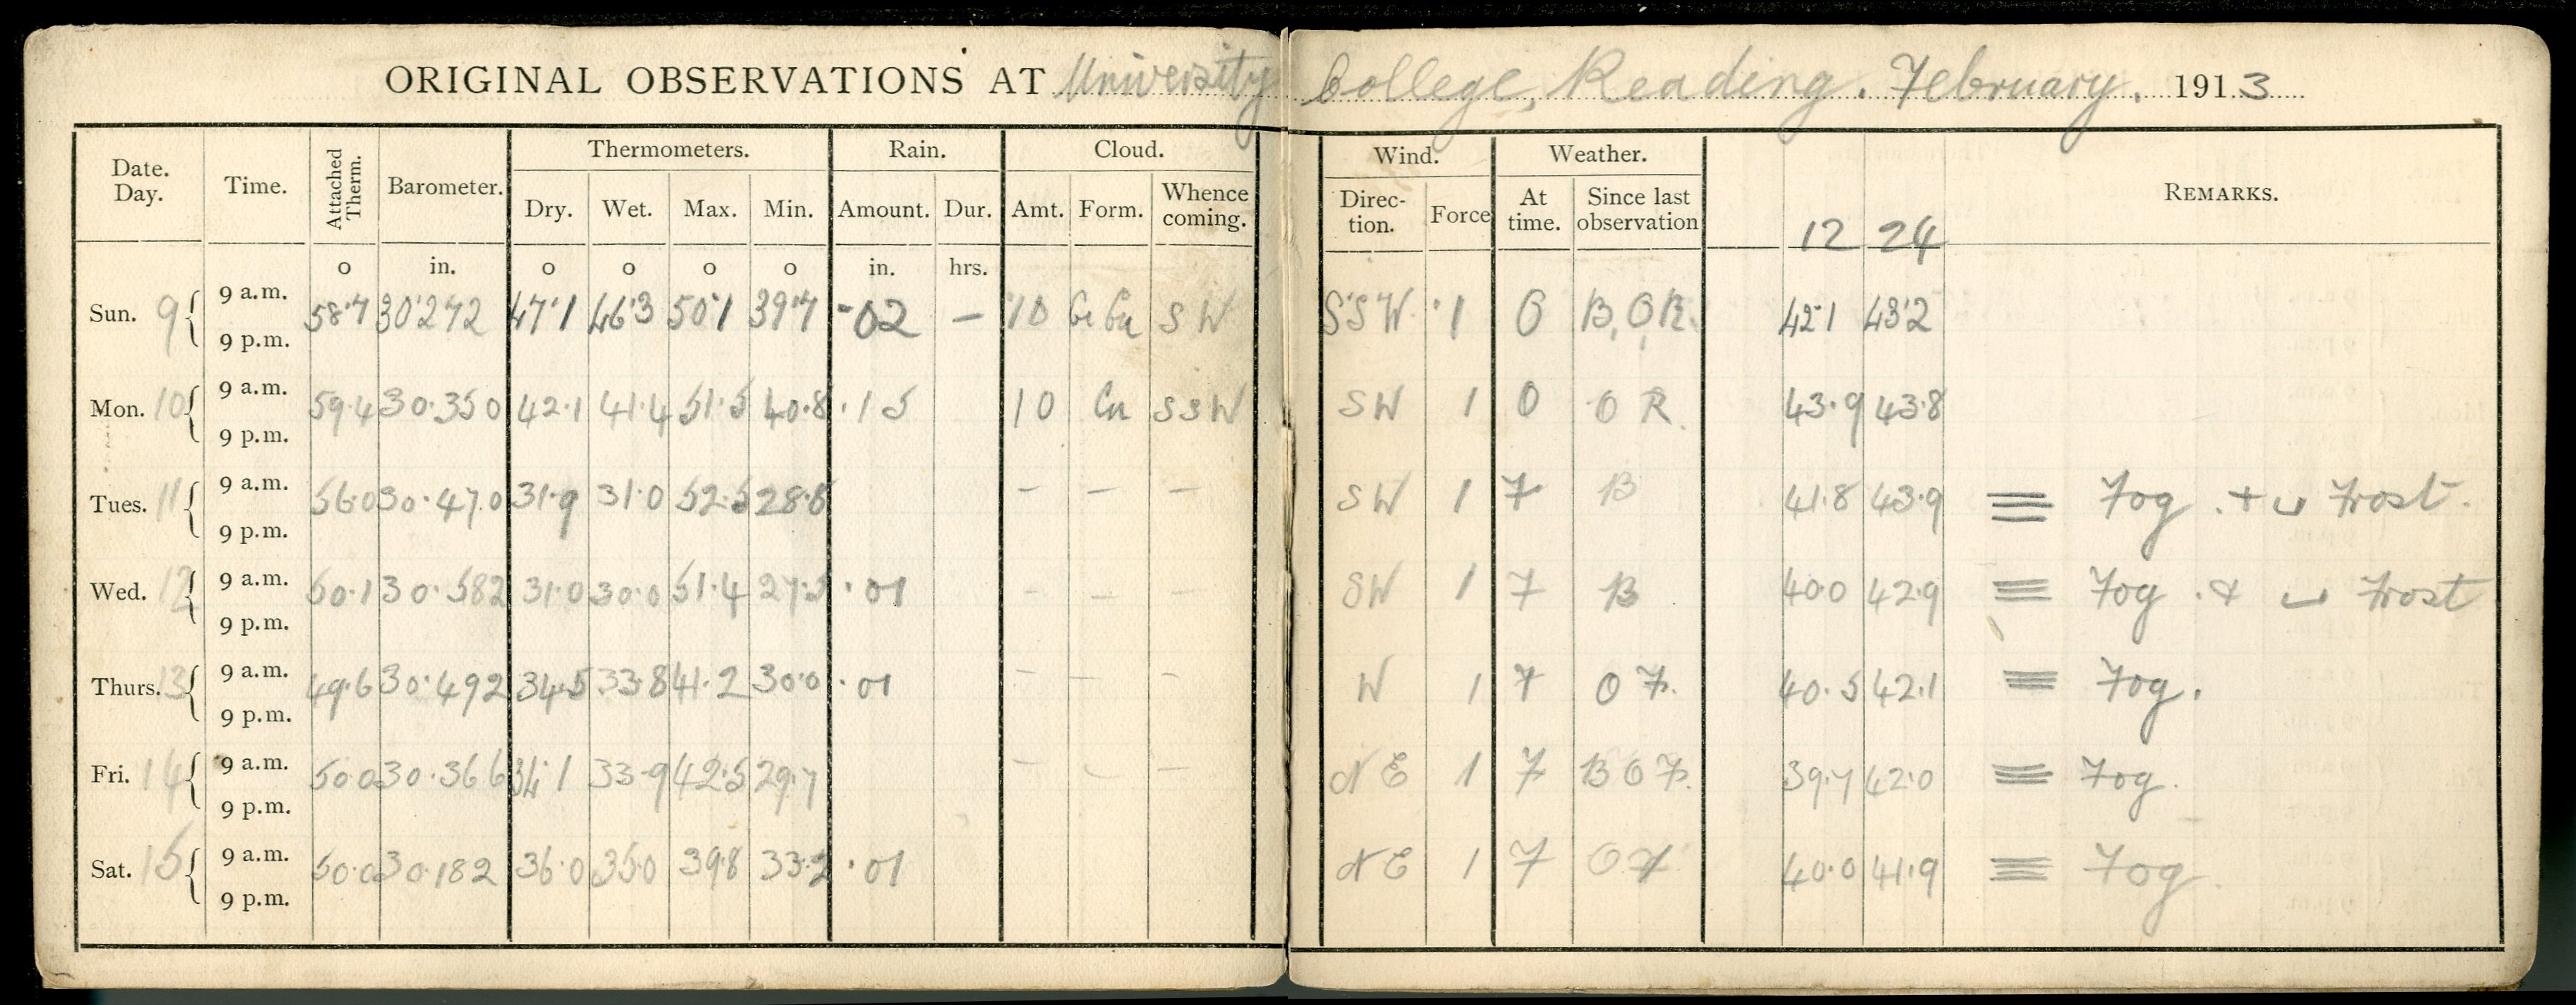 ORIGINAL OBSERVATIONS AT University College, Reading. February. 1913
Date. Day. Time. Attached Therm. Barometer. Thermometers. Rain. Cloud. Wind. Weather. REMARKS.
Dry. Wet. Max. Min. Amount. Dur. Amt. Form. Whence coming. Direc-tion. Force At time. Since last observation 12 24
o in. o o o o in. hrs.
9 a.m.
Sun. 9 58.7 30.272 47.1 46.3 50.1 39.7 .02 — 10 SW SSW 1 O B, O R. 42.1 43.2
9 p.m.
9 a.m.
Mon. 10 59.4 30.350 42.1 41.4 51.5 40.8 .15 10 Cu SSW SW 1 O O R. 43.9 43.8
9 p.m.
9 a.m.
Tues. 11 56.0 30.470 31.9 31.0 52.5 28.8 — — — SW 1 F B 41.8 43.9 ≡ Fog . + ⌴ Frost.
9 p.m.
9 a.m.
Wed. 12 50.1 30.582 31.0 30.0 51.4 27.5 .01 — — — SW 1 F B 40.0 42.9 ≡ Fog . & ⌴ Frost
9 p.m.
9 a.m.
Thurs. 13 49.6 30.492 34.5 33.8 41.2 30.0 .01 — — — W 1 F O F. 40.5 42.1 ≡ Fog.
9 p.m.
9 a.m.
Fri. 14 50.0 30.366 34.1 33.9 42.5 29.7 — — — NE 1 F B O F. 39.7 42.0 ≡ Fog.
9 p.m.
9 a.m.
Sat. 15 50.0 30.182 36.0 35.0 39.8 33.2 .01 NE 1 F O F 40.0 41.9 ≡ Fog.
9 p.m.